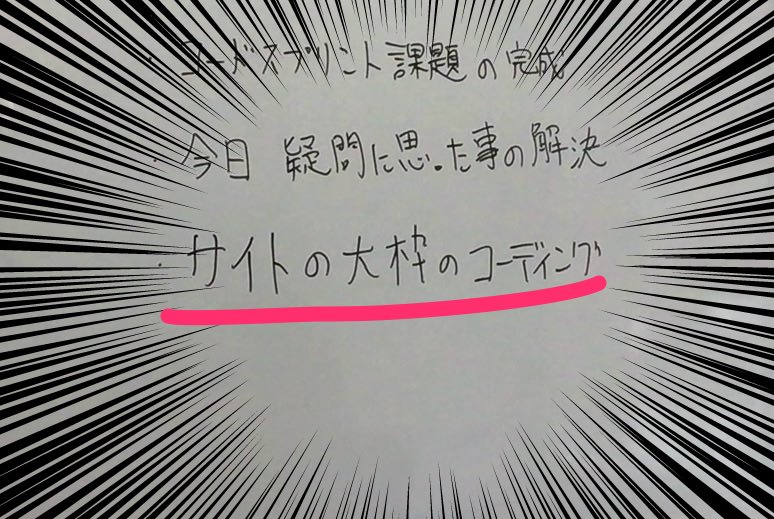 ・コードスプリント課題の完成
・今日 疑問に思った事の解決
・サイトの大枠のコーディング